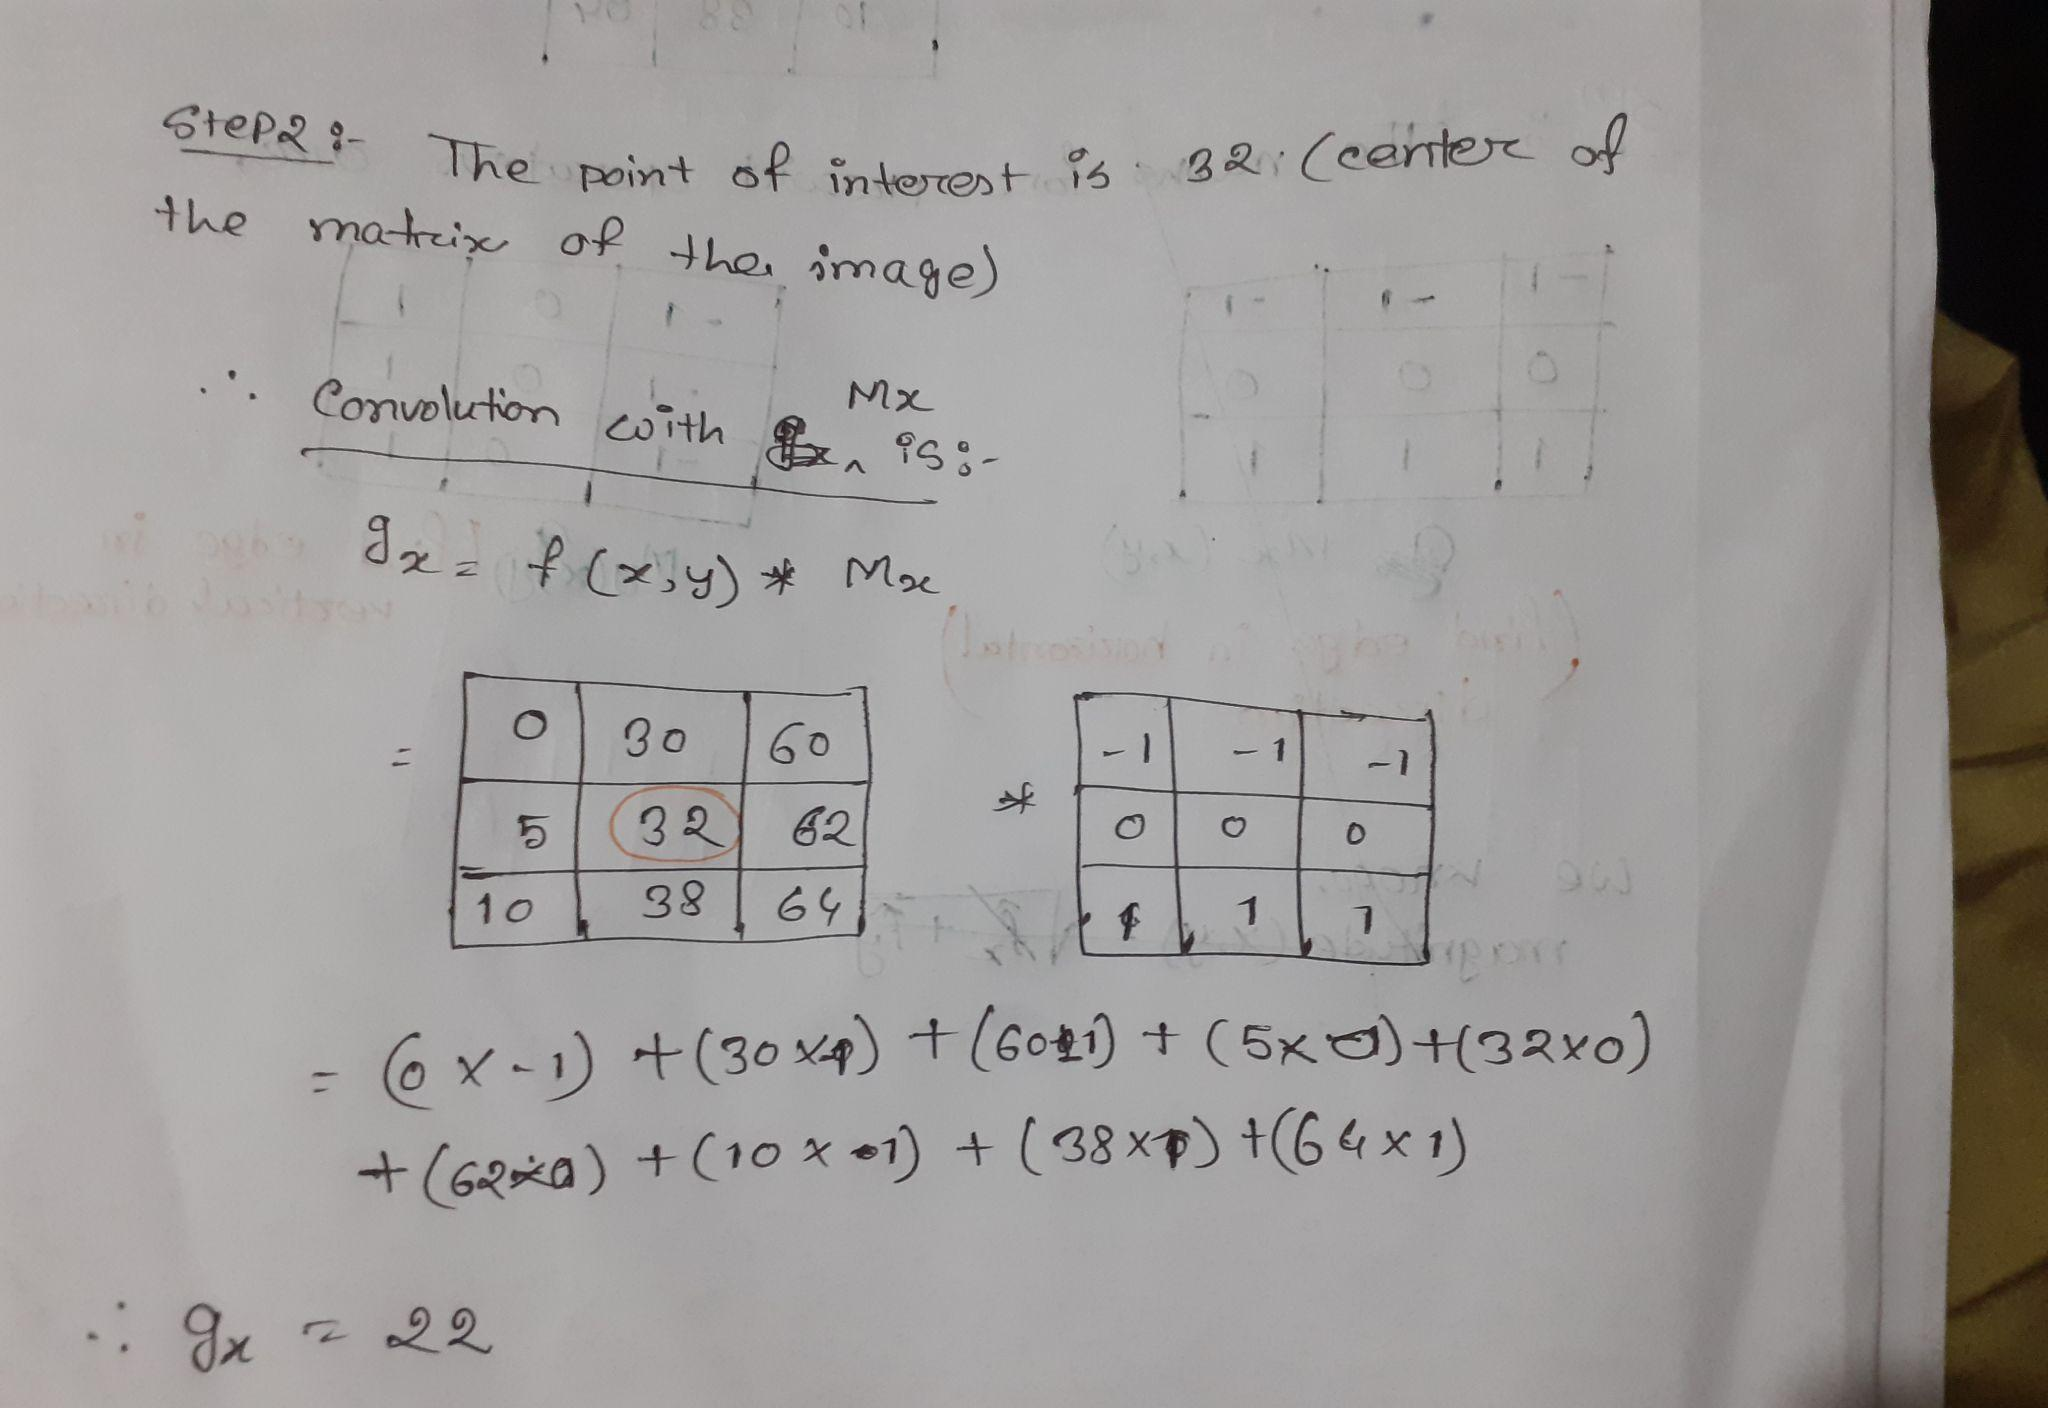 Step2 :- The point of interest is 32. (center of
the matrix of the image)
∴ Convolution with Mx is :-
gx = f(x,y) * Mx
= 0 30 60 * -1 -1 -1
5 32 62 0 0 0
10 38 64 1 1 1
= (0 x -1) + (30 x
+ (5 x 0) + (32 x 0)
+ (62 x 0) + (10 x 1) + (38 x 1) + (64 x 1)
∴ gx = 22